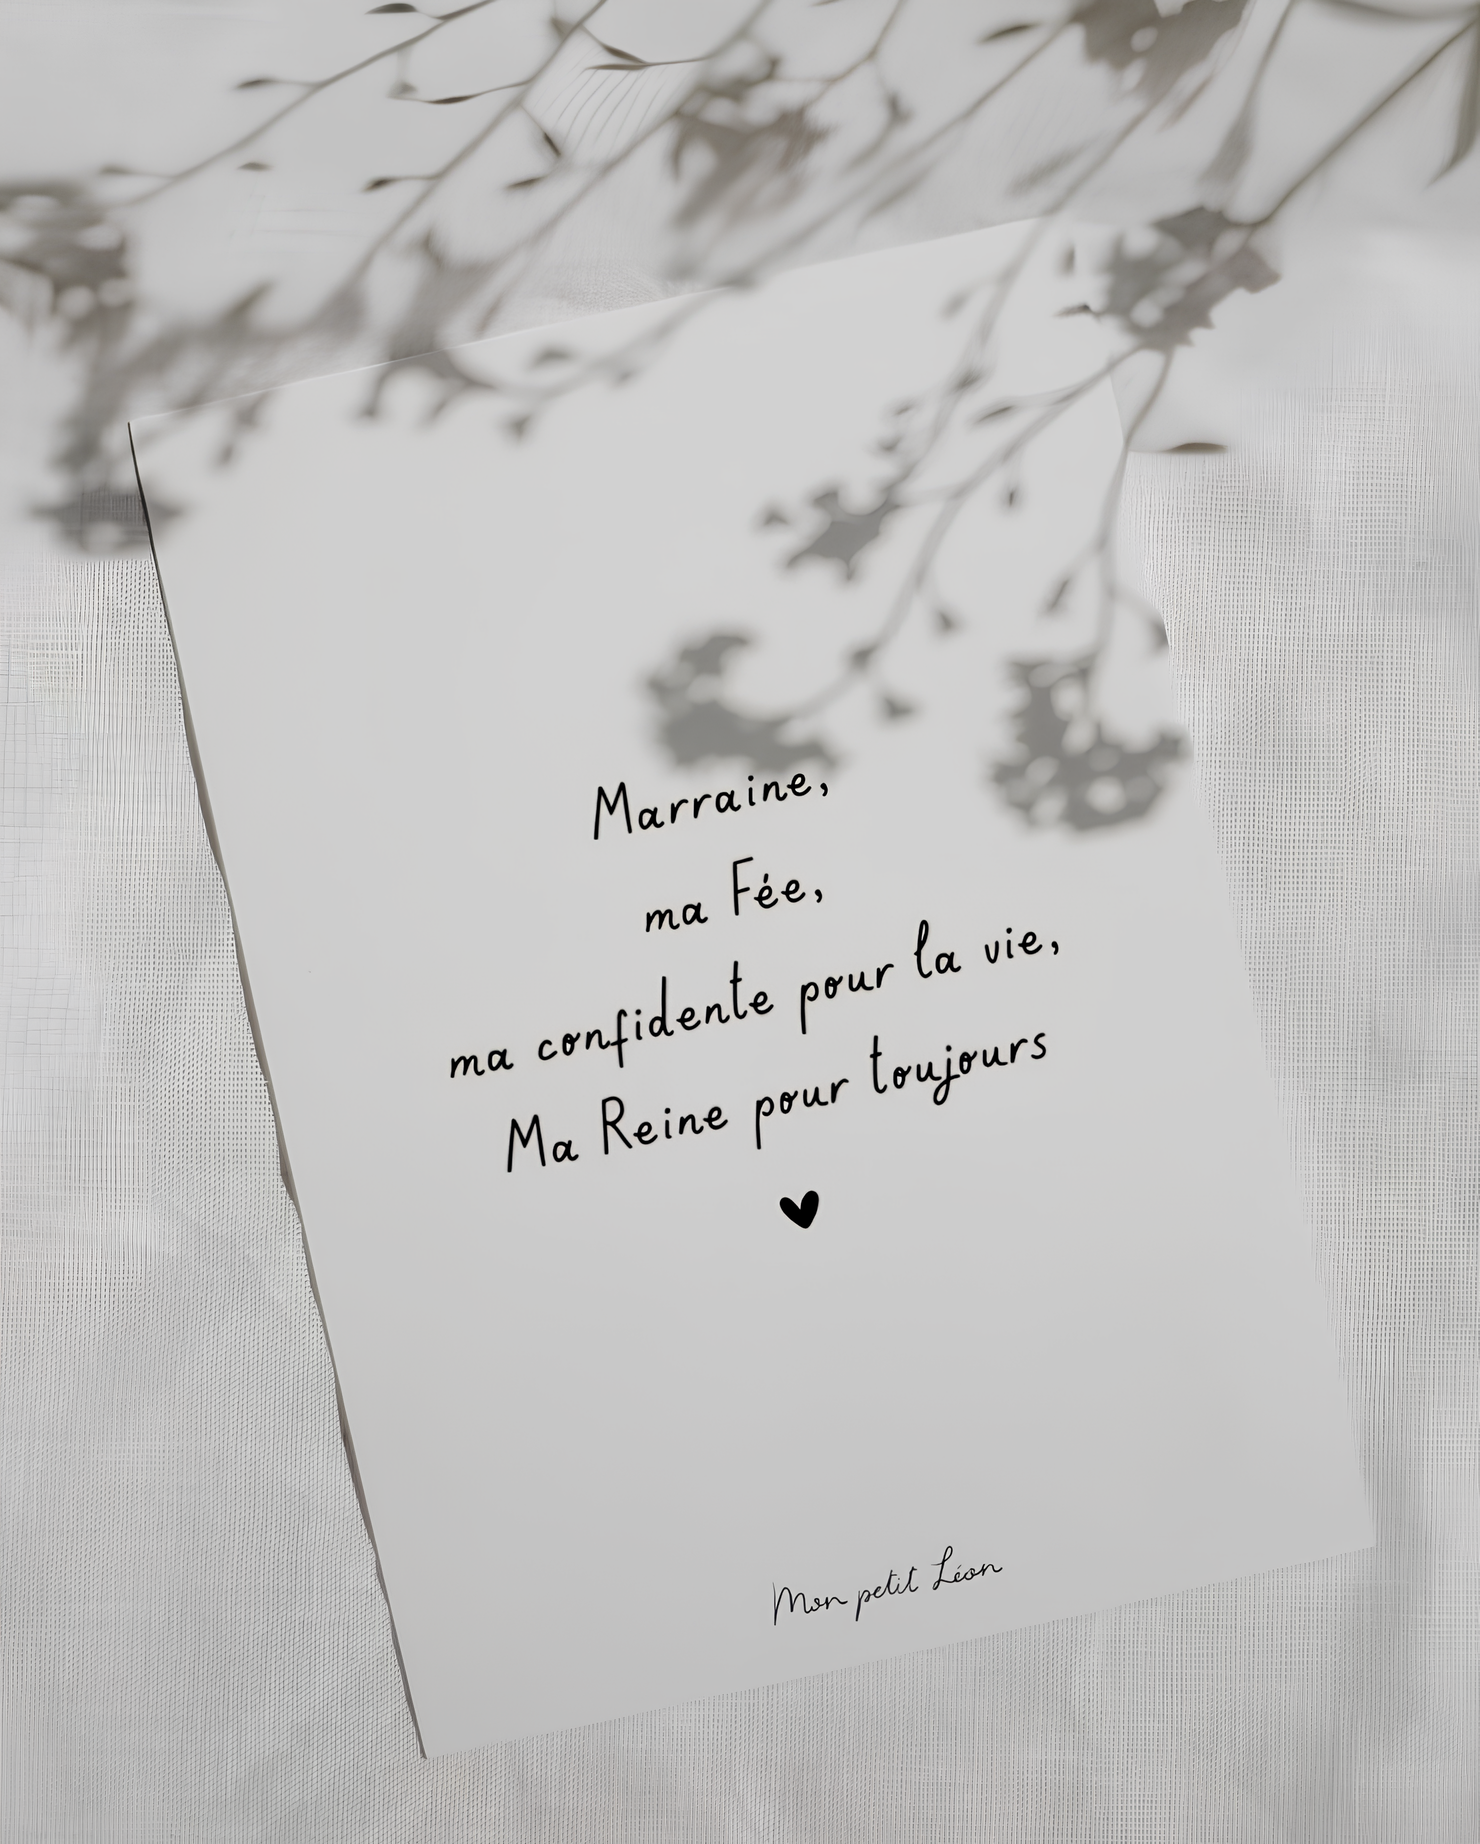 Marraine,
ma Fée,
ma confidente pour la vie,
Ma Reine pour toujours
Mon petit Léon